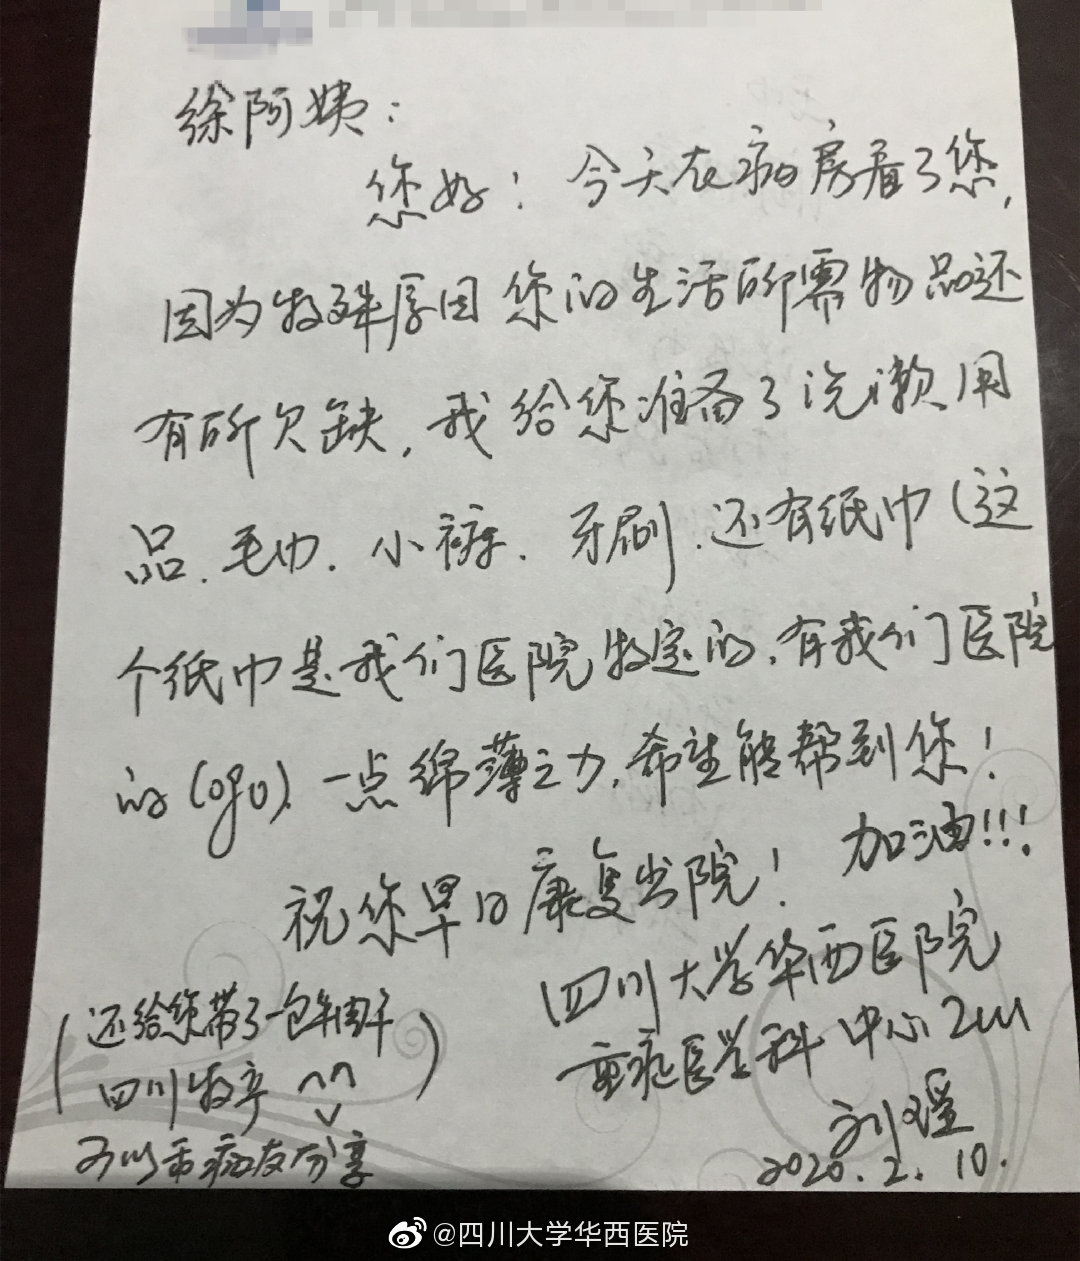 徐阿姨：
您好！今天在病房看了您，
因为特殊原因您的生活所需物品还
有所欠缺，我给您准备了洗漱用
品、毛巾、小裤、牙刷、还有纸巾（这
个纸巾是我们医院特定的，有我们医院
的logo）一点绵薄之力，希望能帮到您！
祝您早日康复出院！加油!!!
四川大学华西医院
重症医学科 中心ICU
刘瑶
2020.2.10.
（还给您带了一包牛肉干
四川特产^^）
可以和病友分享
@四川大学华西医院